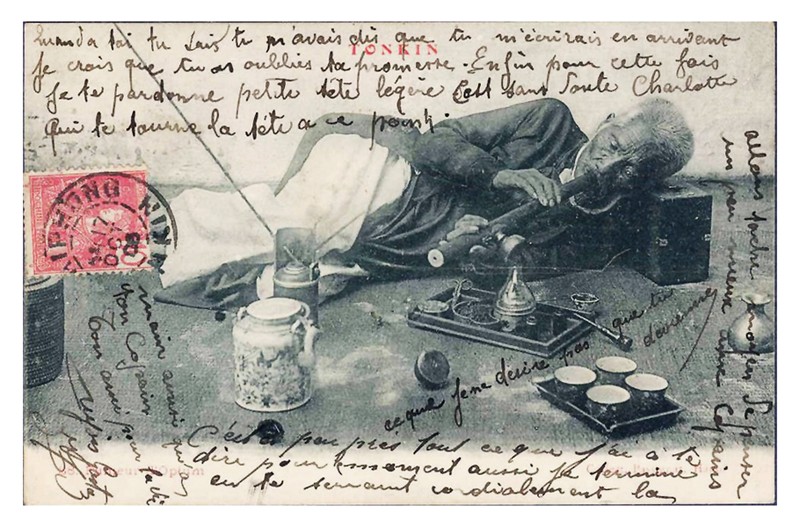 TONKIN
Quand toi tu sais tu m'avais dis que tu m'écrirais en arrivant
je crois que tu as oubliés ta promesse. Enfin pour cette fois
Je te pardonne petite tête légère C'est sans doute Charlotte
qui te tourne la tête a ce point.
allons tache
un peu comme
ce que je ne désire pas que tu
devienne
C'est a peu pres tout ce que j'ai à te
dire pour moment aussi je termine
en te serrant cordialement la
main ainsi que
ton Copain
Ton ami pour la vie
HAIPHONG
TONKIN
10